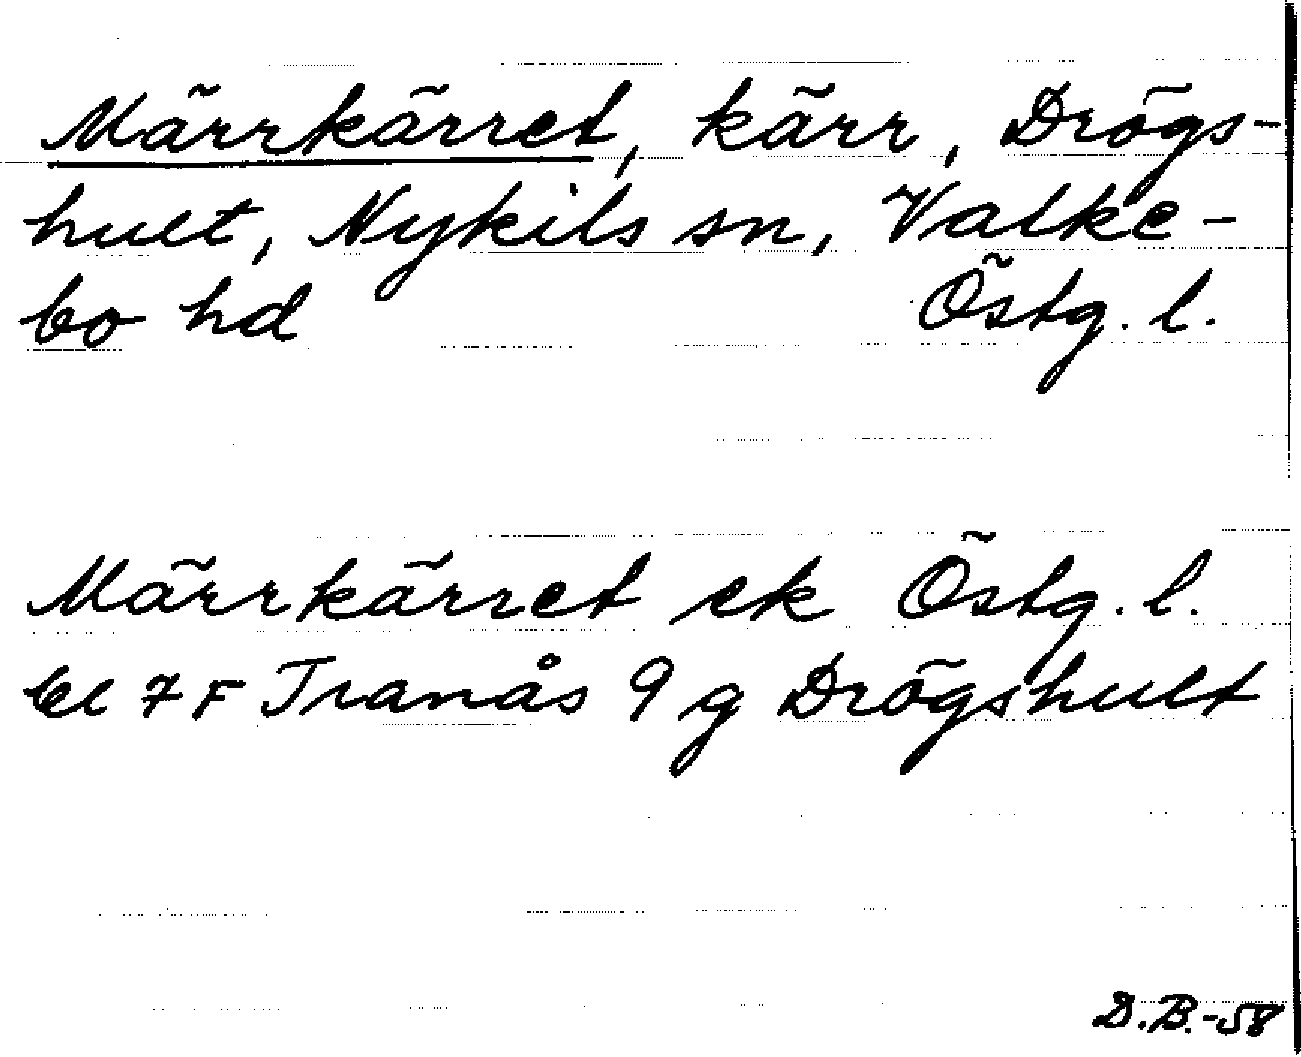 Märrkärret, kärr, Drögs-
hult, Nykils sn, Valke-
bo hd Östg. l.
Märrkärret ek Östg. l.
bl 7 F Tranås 9 g Drögshult
D.B.-58